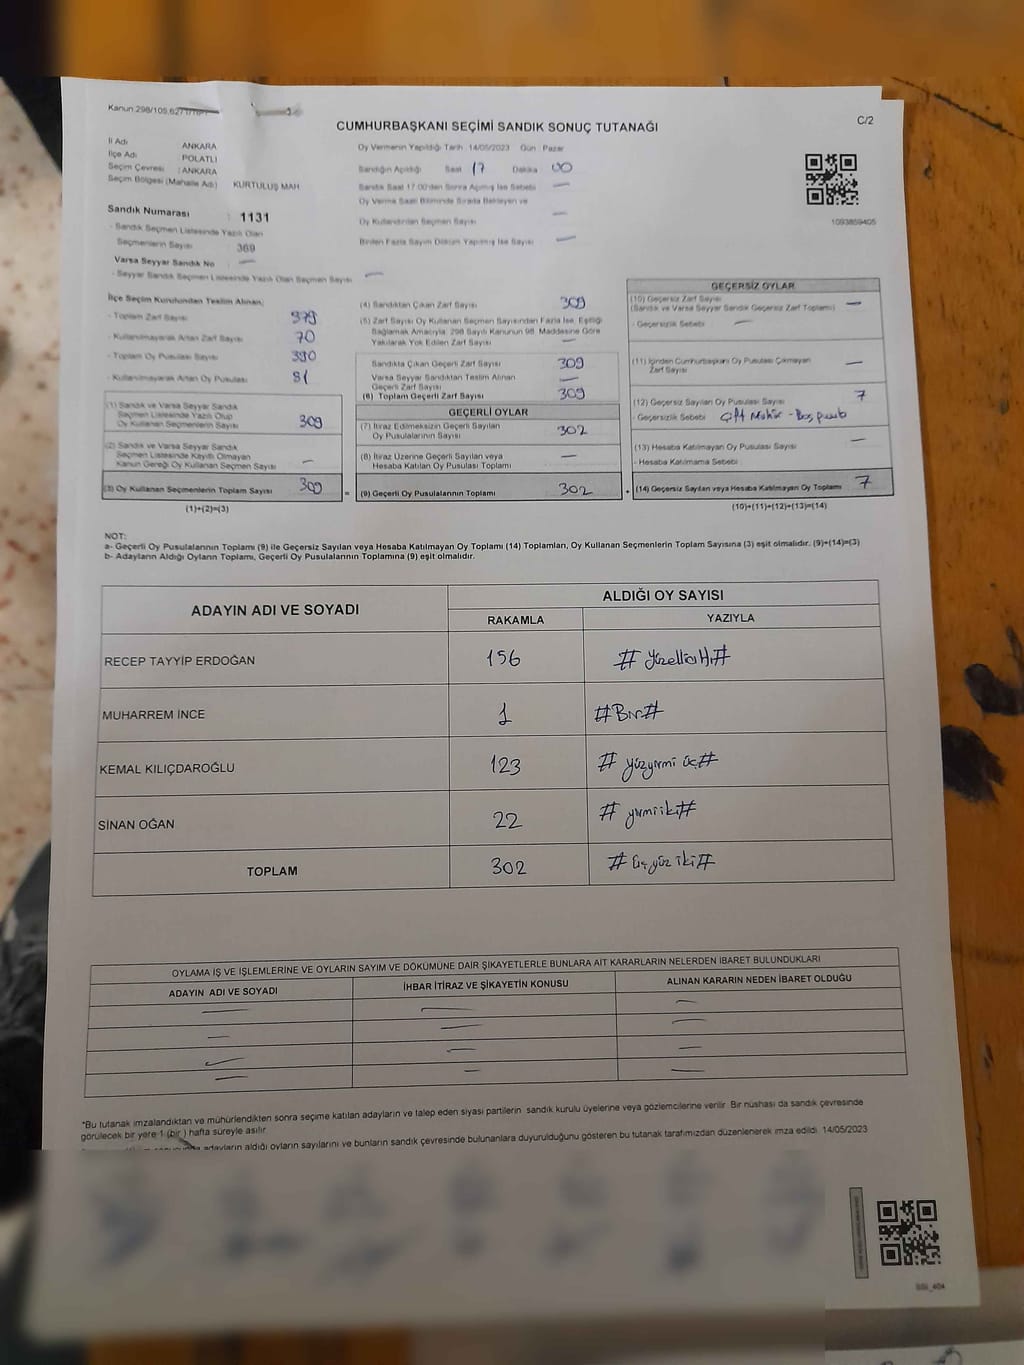 Kanun 298/105,627
CUMHURBAŞKANI SEÇİMİ SANDIK SONUÇ TUTANAĞI
C/2
İl Adı ANKARA
İlçe Adı POLATLI
Seçim Çevresi : ANKARA
Seçim Bölgesi (Mahalle Adı) KURTULUŞ MAH
Sandık Numarası : 1131
- Sandık Seçmen Listesinde Yazılı Olan
Seçmenlerin Sayısı 369
Varsa Seyyar Sandık No —
- Seyyar Sandık Seçmen Listesinde Yazılı Olan Seçmen Sayısı —
Oy Vermenin Yapıldığı Tarih : 14/05/2023 Gün : Pazar
Sandığın Açıldığı Saat 17 Dakika 00
Sandık Saat 17.00'den Sonra Açılmış İse Sebebi —
Oy Verme Saati Bitiminde Sırada Bekleyen ve
Oy Kullandırılan Seçmen Sayısı —
Birden Fazla Sayım Döküm Yapılmış İse Sayısı —
1093859405
İlçe Seçim Kurulundan Teslim Alınan;
- Toplam Zarf Sayısı 379
- Kullanılmayarak Artan Zarf Sayısı 70
- Toplam Oy Pusulası Sayısı 390
- Kullanılmayarak Artan Oy Pusulası 81
(1) Sandık ve Varsa Seyyar Sandık
Seçmen Listesinde Yazılı Olup
Oy Kullanan Seçmenlerin Sayısı 309
(2) Sandık ve Varsa Seyyar Sandık
Seçmen Listesinde Kayıtlı Olmayan
Kanun Gereği Oy Kullanan Seçmen Sayısı —
(3) Oy Kullanan Seçmenlerin Toplam Sayısı 309
(1)+(2)=(3)
(4) Sandıktan Çıkan Zarf Sayısı 309
(5) Zarf Sayısı Oy Kullanan Seçmen Sayısından Fazla İse, Eşitliği
Sağlamak Amacıyla; 298 Sayılı Kanunun 98. Maddesine Göre
Yakılarak Yok Edilen Zarf Sayısı —
Sandıkta Çıkan Geçerli Zarf Sayısı 309
Varsa Seyyar Sandıktan Teslim Alınan
Geçerli Zarf Sayısı —
(6) Toplam Geçerli Zarf Sayısı 309
GEÇERLİ OYLAR
(7) İtiraz Edilmeksizin Geçerli Sayılan
Oy Pusulalarının Sayısı 302
(8) İtiraz Üzerine Geçerli Sayılan veya
Hesaba Katılan Oy Pusulası Toplamı —
= (9) Geçerli Oy Pusulalarının Toplamı 302
GEÇERSİZ OYLAR
(10) Geçersiz Zarf Sayısı —
(Sandık ve Varsa Seyyar Sandık Geçersiz Zarf Toplamı)
- Geçersizlik Sebebi —
(11) İçinden Cumhurbaşkanı Oy Pusulası Çıkmayan
Zarf Sayısı —
(12) Geçersiz Sayılan Oy Pusulası Sayısı 7
- Geçersizlik Sebebi Çift Mühür - Boş pusula
(13) Hesaba Katılmayan Oy Pusulası Sayısı —
- Hesaba Katılmama Sebebi
+ (14) Geçersiz Sayılan veya Hesaba Katılmayan Oy Toplamı 7
(10)+(11)+(12)+(13)=(14)
NOT:
a- Geçerli Oy Pusulalarının Toplamı (9) ile Geçersiz Sayılan veya Hesaba Katılmayan Oy Toplamı (14) Toplamları, Oy Kullanan Seçmenlerin Toplam Sayısına (3) eşit olmalıdır. (9)+(14)=(3)
b- Adayların Aldığı Oyların Toplamı, Geçerli Oy Pusulalarının Toplamına (9) eşit olmalıdır.
ADAYIN ADI VE SOYADI
ALDIĞI OY SAYISI
RAKAMLA YAZIYLA
RECEP TAYYİP ERDOĞAN 156 # yüzellialtı#
MUHARREM İNCE 1 #Bir#
KEMAL KILIÇDAROĞLU 123 # yüzyirmi üç#
SİNAN OĞAN 22 # yirmiiki#
TOPLAM 302 # üçyüz iki#
OYLAMA İŞ VE İŞLEMLERİNE VE OYLARIN SAYIM VE DÖKÜMÜNE DAİR ŞİKAYETLERLE BUNLARA AİT KARARLARIN NELERDEN İBARET BULUNDUKLARI
ADAYIN ADI VE SOYADI İHBAR İTİRAZ VE ŞİKAYETİN KONUSU ALINAN KARARIN NEDEN İBARET OLDUĞU
— — —
— — —
— — —
— — —
*Bu tutanak imzalandıktan ve mühürlendikten sonra seçime katılan adayların ve talep eden siyasi partilerin sandık kurulu üyelerine veya gözlemcilerine verilir. Bir nüshası da sandık çevresinde
görülecek bir yere 1 (bir ) hafta süreyle asılır.
adayların aldığı oyların sayılarını ve bunların sandık çevresinde bulunanlara duyurulduğunu gösteren bu tutanak tarafımızdan düzenlenerek imza edildi. 14/05/2023